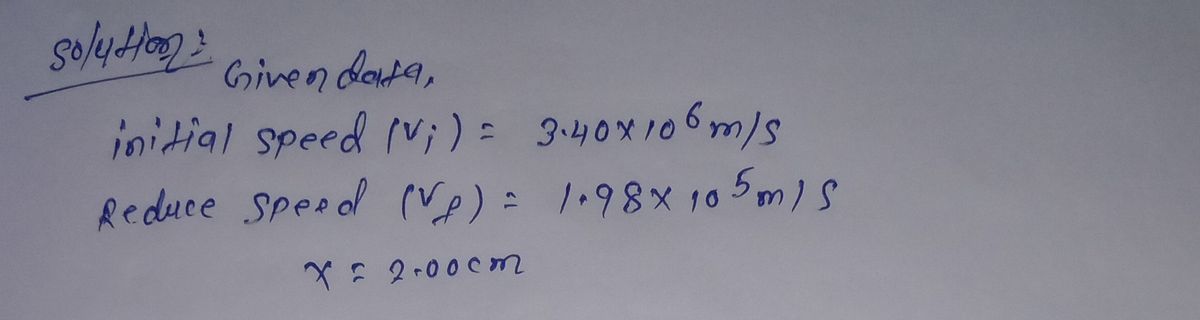 Solution:
Given data,
initial speed (Vi) = 3.40 x 10^6 m/s
Reduce speed (Vf) = 1.98 x 10^5 m/s
x = 2.00 cm